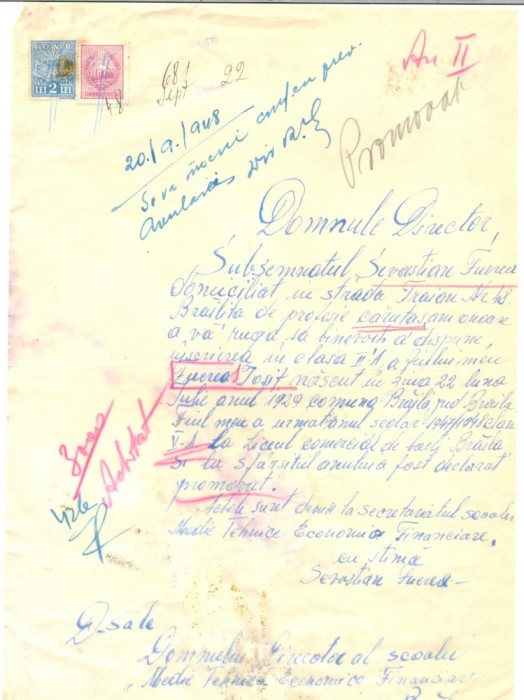 LEI 2 LEI
681 22
Sept
48
An II
Promovat
20/9/948
Se va înscrie
Domnule Director,
Subsemnatul Sevastian Fuerea
domiciliat în strada Traian Nr.
Brăilița de profesie căruțaș am onoare
a vă ruga să binevoiți a dispune,
înscrierea în clasa II-a, a fiului meu
Fuerea Iosif născut în ziua 22 luna
Iulie anul 1929 comuna Brăila jud Braila
Fiul meu a urmat anul școlar 1947/1948 clasa
V-a la Liceul comercial de baeți Brăila
și la sfârșitul anului a fost declarat
promovat.
Actele sunt depuse la secretariatul scoalei
Medie Tehnice Economico Financiare.
cu stimă
Sevastian Fuerea
Achitat
D-sale
Domnului Director al scoalei
"Medie Tehnice Economico Financiare